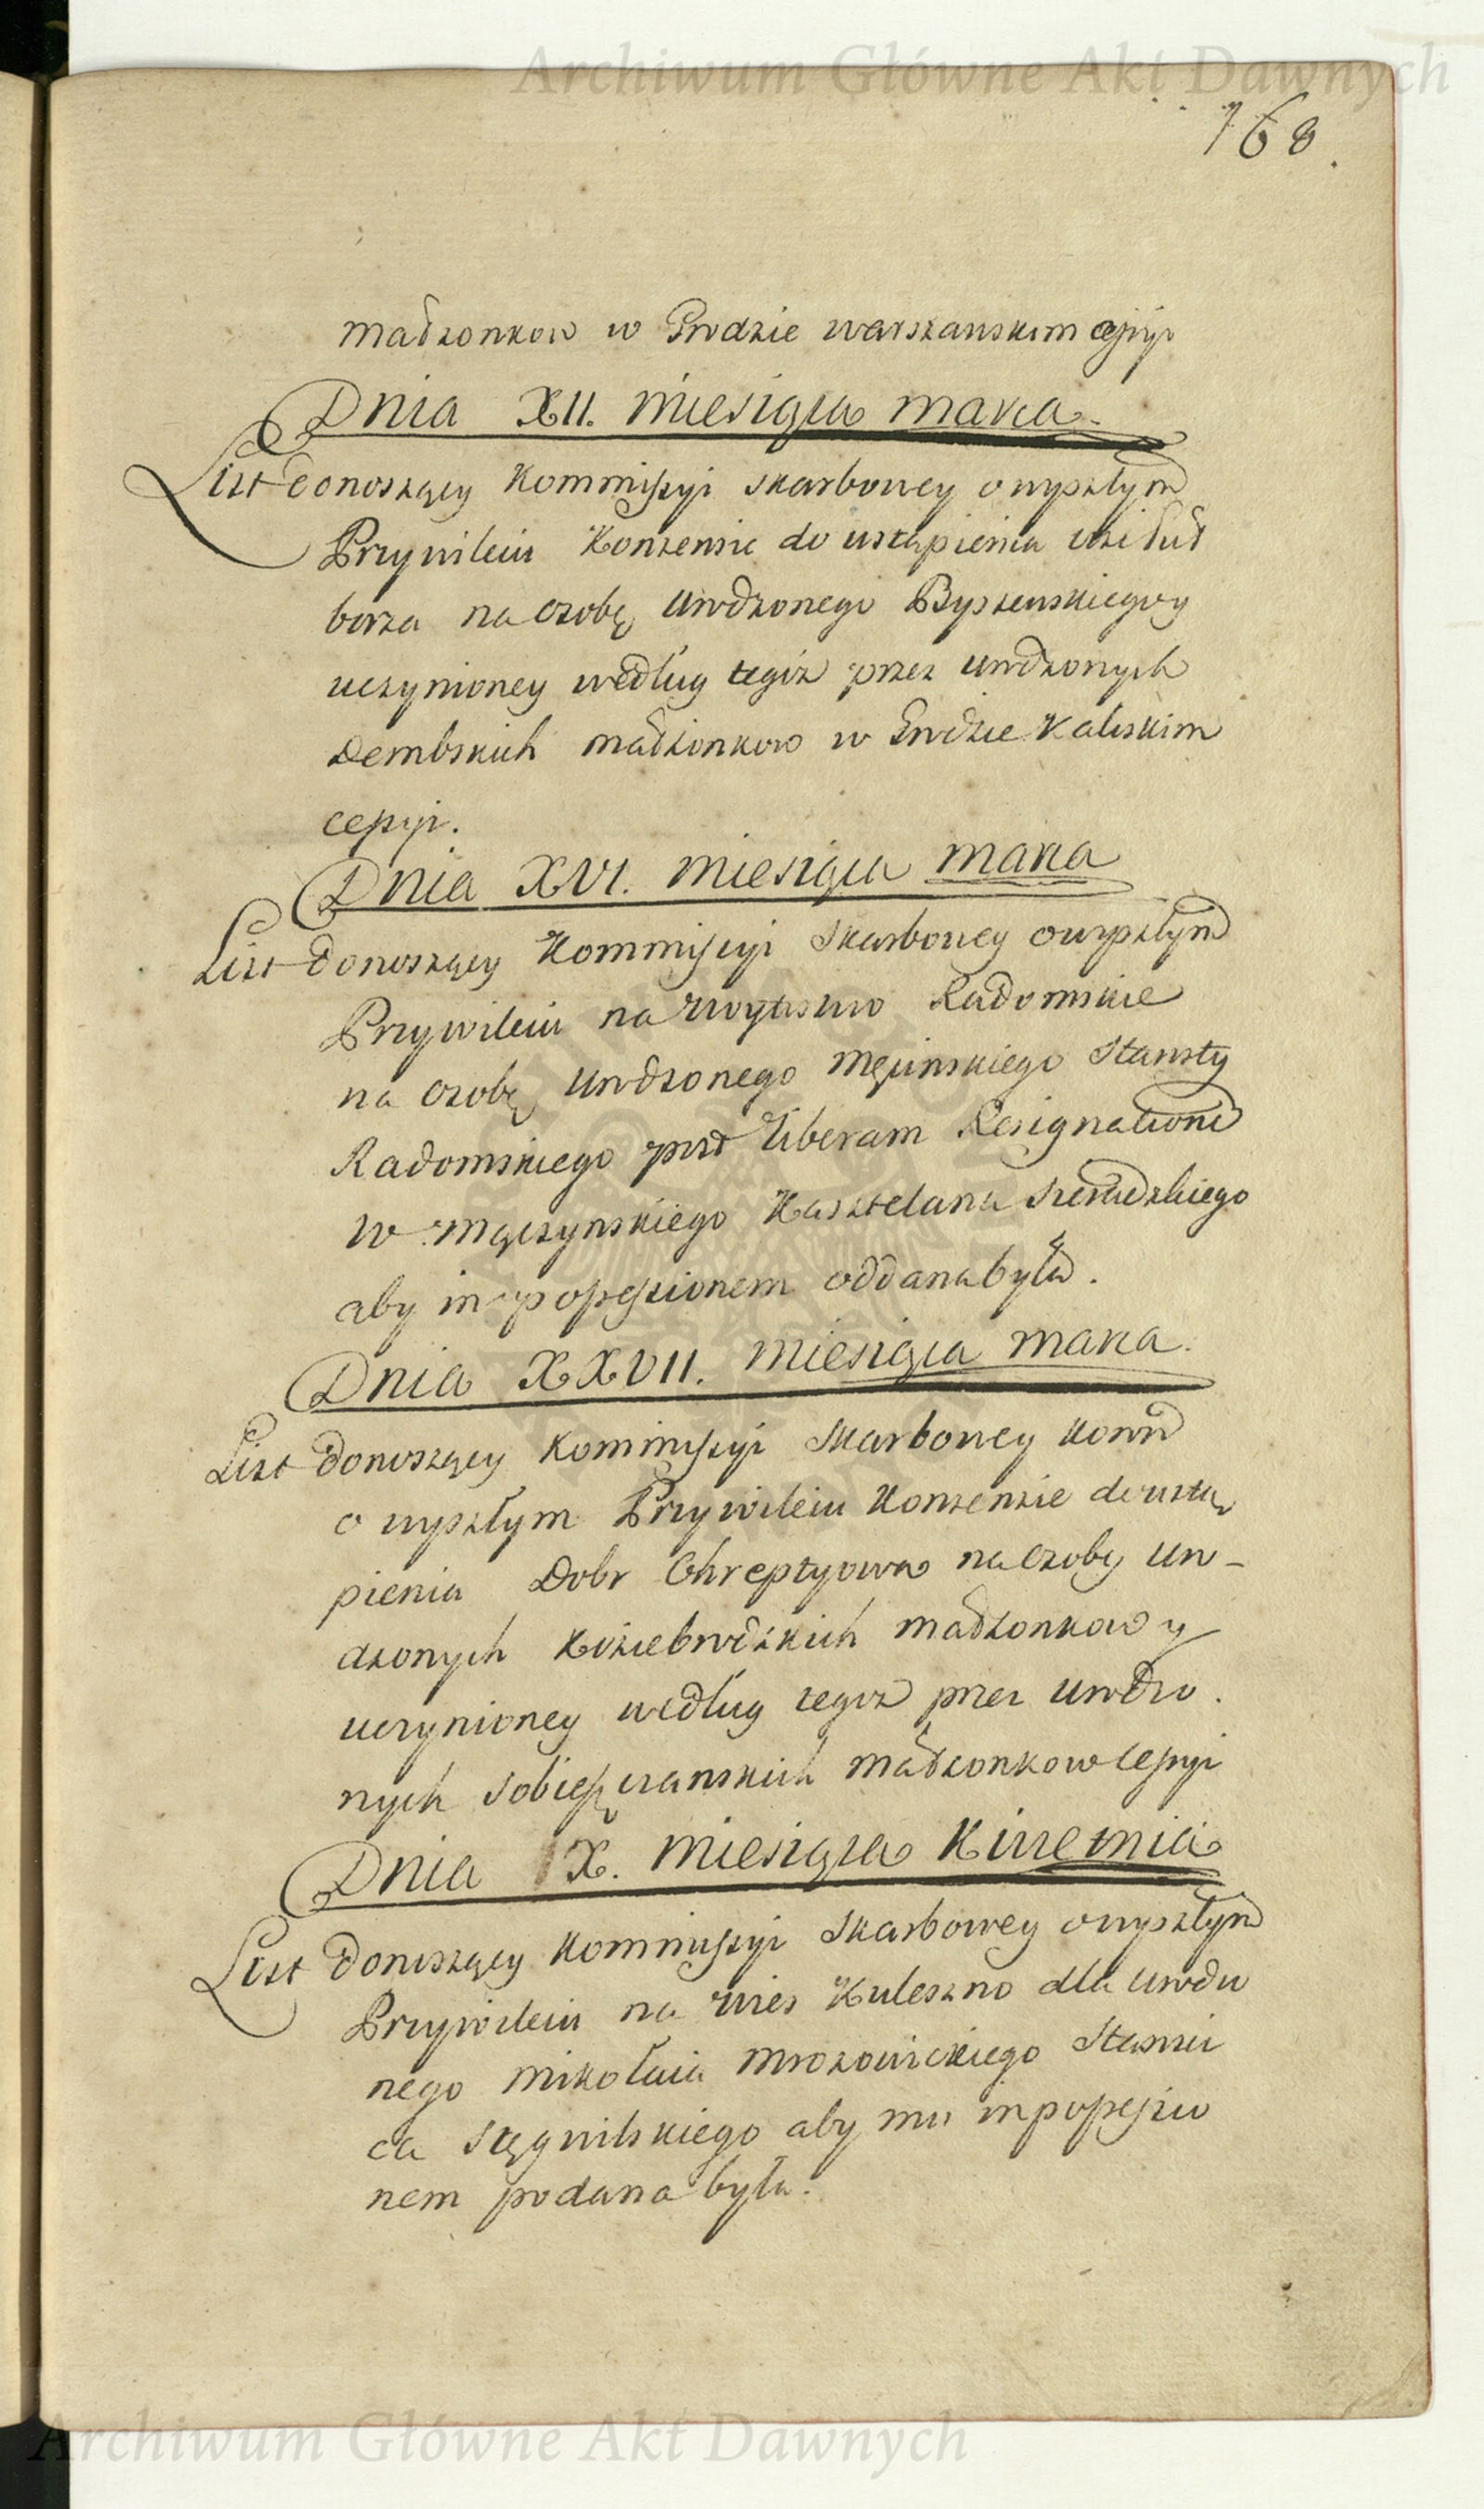 Archiwum Główne Akt Dawnych
168.
małżonkow w Grodzie warszawskim
Dnia XII. miesiąca marca.
List donoszący Kommissyi skarbowey o wyszłym
Przywileiu Konsensie do ustąpienia wsi
borza na osobę Urodzonego Byszewskiego y
uczynioney według tegoż przez urodzonych
Dembskich małżonkow w Grodzie Kaliskim
cessyi.
Dnia XVI. miesiąca marca
List donoszący Kommissyi Skarbowey o wyszłym
Przywileiu na Woytostwo Radomskie
na osobę Urodzonego Męcinskiego Starosty
Radomskiego post liberam Resignationem
W Męczynskiego Kasztelana Sieradzkiego
aby in possessionem oddana była.
Dnia XXVII. miesiąca marca.
List donoszący Kommissyi Skarbowey Koron
o wyszłym Przywileiu Konsensie do ustą
pienia Dobr Chreptyowa na osoby Uro-
dzonych Kożiebrodzkich małżonkow y
uczynioney według tegoż przez urodzo.
nych małżonkow cessyi
Dnia IX. miesiąca Kwietnia
List donoszący Kommissyi Skarbowey o wyszłym
Przywileiu na Wies Kuleszno dla urodzo
nego mikołaia Mrozowickiego Starosci
ca Stęgwilskiego aby mu in possessio
nem podana była.
Archiwum Główne Akt Dawnych